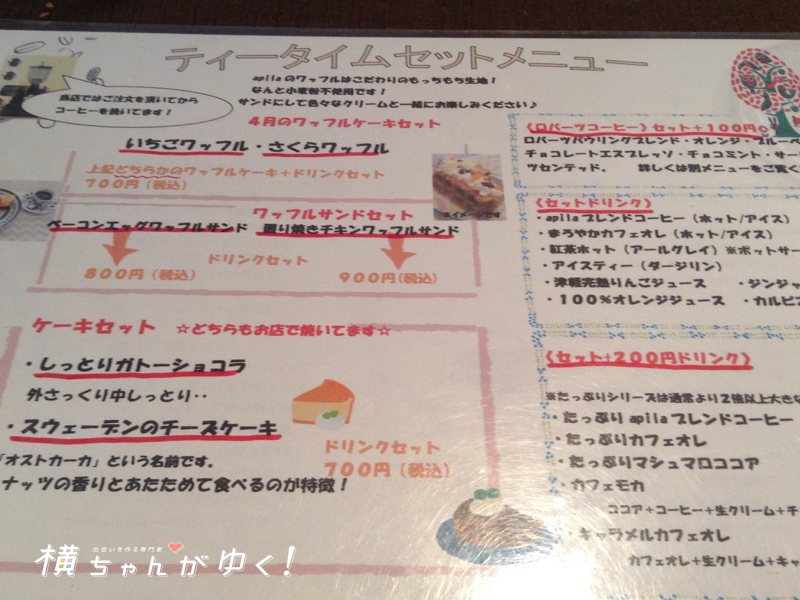 ティータイムセットメニュー
apilaのワッフルはこだわりのもっちもち生地！
なんと小麦粉不使用です！
サンドにして色々なクリームと一緒にお楽しみください♪
当店ではご注文を頂いてから
コーヒーを焼いてます！
4月のワッフルケーキセット
いちごワッフル・さくらワッフル
上記どちらかのワッフルケーキ＋ドリンクセット
700円（税込）
※イメージです
ワッフルサンドセット
ベーコンエッグワッフルサンド 照り焼きチキンワッフルサンド
ドリンクセット
800円（税込） 900円（税込）
ケーキセット ☆どちらもお店で焼いてます☆
・しっとりガトーショコラ
外さっくり中しっとり‥
・スウェーデンのチーズケーキ
「オストカーカ」という名前です。
ナッツの香りとあたためて食べるのが特徴！
ドリンクセット
700円（税込）
〈ロバーツコーヒー〉セット＋100円
ロバーツパウリングブレンド・オレンジ・ブルーベ
チョコレートエスプレッソ・チョコミント・サー
ツセンテッド。 詳しくは別メニューをご覧く
〈セットドリンク〉
・apilaブレンドコーヒー（ホット/アイス）
・まろやかカフェオレ（ホット/アイス）
・紅茶ホット（アールグレイ）※ポットサー
・アイスティー（ダージリン）
・津軽完熟りんごジュース ・ジンジャ
・100％オレンジジュース ・カルピス
〈セット＋200円ドリンク〉
※たっぷりシリーズは通常より2倍以上大きな
・たっぷりapilaブレンドコーヒー
・たっぷりカフェオレ
・たっぷりマシュマロココア
・カフェモカ
ココア＋コーヒー＋生クリーム＋チ
・キャラメルカフェオレ
カフェオレ＋生クリーム＋キャ
出会いを作る専門家
横ちゃんがゆく！